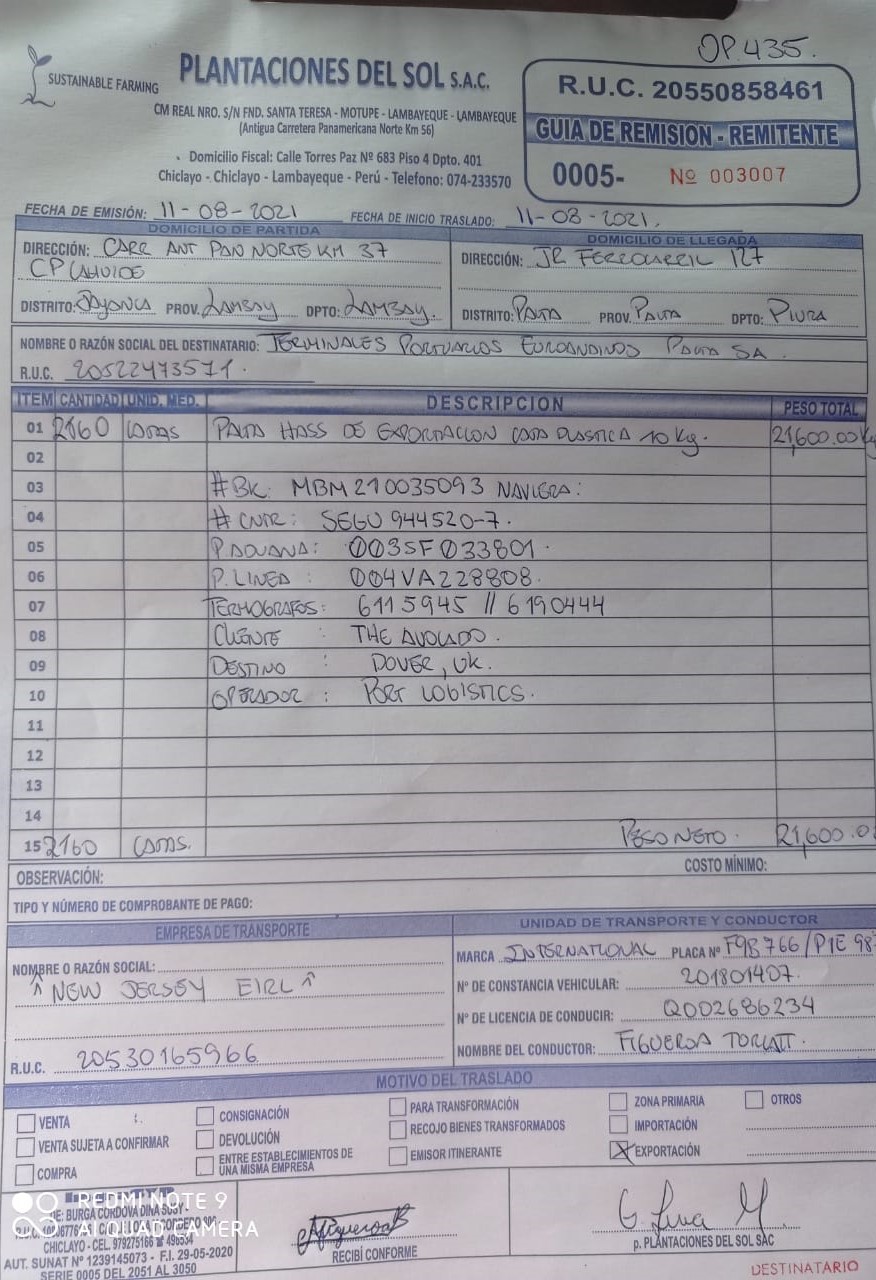 OP. 435.
SUSTAINABLE FARMING
PLANTACIONES DEL SOL S.A.C.
CM REAL NRO. S/N FND. SANTA TERESA - MOTUPE - LAMBAYEQUE - LAMBAYEQUE
(Antigua Carretera Panamericana Norte Km 56)
Domicilio Fiscal: Calle Torres Paz Nº 683 Piso 4 Dpto. 401
Chiclayo - Chiclayo - Lambayeque - Perú - Telefono: 074-233570
R.U.C. 20550858461
GUIA DE REMISIÓN - REMITENTE
0005- Nº 003007
FECHA DE EMISIÓN: 11-08-2021 FECHA DE INICIO TRASLADO: 11-08-2021.
DOMICILIO DE PARTIDA
DIRECCIÓN: CARR ANT PAN NORTE KM 37
CP
DISTRITO: PROV. LAMBAY DPTO: LAMBAY.
DOMICILIO DE LLEGADA
DIRECCIÓN: JR FERROCARRIL 127
DISTRITO: PAITA PROV. PAITA DPTO: PIURA
NOMBRE O RAZÓN SOCIAL DEL DESTINATARIO: TERMINALES PORTUARIOS EUROANDINOS PAITA SA.
R.U.C. 20522473571.
ITEM CANTIDAD UNID. MED. DESCRIPCION PESO TOTAL
01 2160 CAJAS PALTA HASS DE EXPORTACION CAJA PLASTICA 10 Kg. 21,600.00 Kg
02
03 #BK: MBM210035093 NAVIERA:
04 # CNTR: SEGU 944520-7.
05 P. ADUANA: 003SF033801.
06 P. LINEA : 004VA228808.
07 TERMOGRAFOS: 6115945 // 6190444
08 CLIENTE : THE AVOCADO.
09 DESTINO : DOVER, UK.
10 OPERADOR : PORT LOGISTICS.
11
12
13
14
15 2160 CAJAS. PESO NETO. 21,600.0
OBSERVACIÓN: COSTO MÍNIMO:
TIPO Y NÚMERO DE COMPROBANTE DE PAGO:
EMPRESA DE TRANSPORTE
NOMBRE O RAZÓN SOCIAL:
NEW JERSEY EIRL
R.U.C. 20530165966
UNIDAD DE TRANSPORTE Y CONDUCTOR
MARCA INTERNATIONAL PLACA Nº F9B766/P1E 98
Nº DE CONSTANCIA VEHICULAR: 201801407.
Nº DE LICENCIA DE CONDUCIR: Q002686234
NOMBRE DEL CONDUCTOR: FIGUEROA
MOTIVO DEL TRASLADO
VENTA CONSIGNACIÓN PARA TRANSFORMACIÓN ZONA PRIMARIA OTROS
VENTA SUJETA A CONFIRMAR DEVOLUCIÓN RECOJO BIENES TRANSFORMADOS IMPORTACIÓN
COMPRA ENTRE ESTABLECIMIENTOS DE UNA MISMA EMPRESA EMISOR ITINERANTE X EXPORTACIÓN
DE: BURGA CORDOVA DINA SUSY -
CHICLAYO - CEL. 979275166
AUT. SUNAT Nº 1239145073 - F.I. 29-05-2020
SERIE 0005 DEL 2051 AL 3050
REDMI NOTE 9
AI QUAD CAMERA
RECIBÍ CONFORME
p. PLANTACIONES DEL SOL SAC
DESTINATARIO